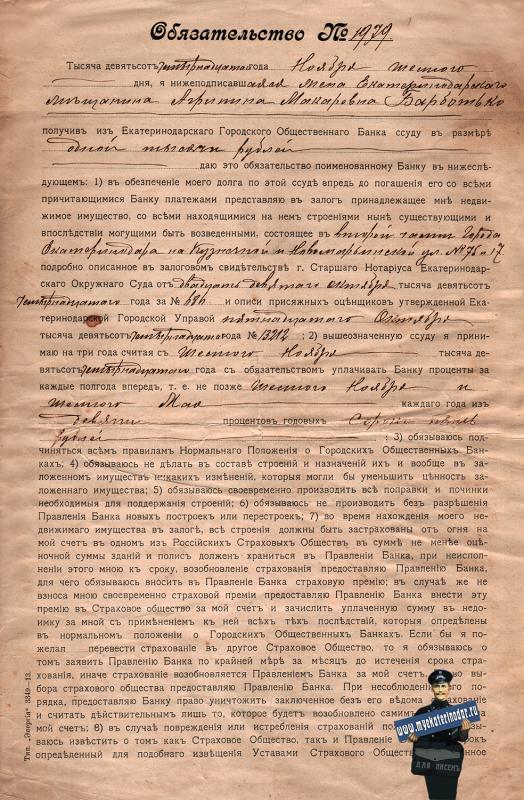 Обязательство № 1979
Тысяча девятьсот четырнадцатаго года Ноября шестого
дня, я нижеподписавшаяся жена Екатеринодарскаго
мѣщанина Агрипина Макаровна Барботько
получив из Екатеринодарскаго Городского Общественнаго Банка ссуду въ размѣрѣ
одной тысячи рублей
даю это обязательство поименованному Банку в нижеслѣ-
дующем: 1) въ обезпеченіе моего долга по этой ссудѣ впредь до погашенія его со всѣми
причитающимися Банку платежами представляю въ залог принадлежащее мнѣ недвижи-
мое имущество, со всѣми находящимися на нем строеніями нынѣ существующими и
впослѣдствіи могущими быть возведенными, состоящее въ второй части города
Екатеринодара на Кузнечной и Новомарьинской ул. № 75 и 17
подробно описанное в залоговом свидѣтельствѣ г. Старшаго Нотаріуса Екатеринодар-
скаго Окружнаго Суда от двадцать девятого октября тысяча девятьсот
четырнадцатаго года за № 686 и описи присяжных оцѣнщиков утвержденной Ека-
теринодарской Городской Управой пятнадцатого Октября
тысяча девятьсот четырнадцатаго года № 13212; 2) вышеозначенную ссуду я прини-
маю на три года считая съ шестого Ноября тысяча де-
вятьсот четырнадцатаго года съ обязательством уплачивать Банку проценты за
каждые полгода впередъ, т. е. не позже шестого Ноября и
шестого Мая каждаго года из
девяти процентов годовых Сорок пять
рублей ; 3) обязываюсь под-
чиняться всѣм правилам Нормальнаго Положенія о Городских Общественных Бан-
ках; 4) обязываюсь не дѣлать в составѣ строеній и назначеній их и вообще в за-
ложенном имуществѣ никаких измѣненій, которыя могли бы уменьшить цѣнность за-
ложеннаго имущества; 5) обязываюсь своевременно производить всѣ поправки и починки
необходимыя для поддержанія строеній; 6) обязываюсь не производить безъ разрѣшенія
Правленія Банка новых построек или перестроек; 7) во время нахожденія моего не-
движимаго имущества въ залогѣ, всѣ строенія должны быть застрахованы от огня на
мой счет въ одном из Россійских Страховых Обществ въ суммѣ не менѣе оцѣ-
ночной суммы зданій и полис должен храниться въ Правленіи Банка, при неиспол-
неніи этого мною къ сроку, возобновленіе страхованія предоставляю Правленію Банка,
для чего обязываюсь вносить в Правленіе Банка страховую премію; въ случаѣ же не
взноса мною своевременно страховой преміи предоставляю Правленію Банка внести эту
премію въ Страховое общество за мой счет и зачислить уплаченную сумму въ недо-
имку за мной с примѣненіем къ ней всѣх тѣх послѣдствій, которыя опредѣлены
в нормальном положеніи о Городских Общественных Банках. Если бы я по-
желал перевести страхованіе в другое Страховое Общество, то я обязываюсь о
том заявить Правленію Банка по крайней мѣрѣ за мѣсяцъ до истеченія срока стра-
хованія, иначе страхованіе возобновляется Правленіем Банка
бора страхового общества предоставляю Правленію Банка. При несоблюденіи
рядка, предоставляю Банку право уничтожить заключенное без его вѣдома
и считать дѣйствительным лишь то, которое будет возобновлено самим
мой счет: 8) въ случаѣ поврежденія или истребленія страхованій
ваюсь извѣстить о том как Страховое Общество, так и Правленіе
опредѣленный для подобнаго извѣщенія Уставами Страхового Общест
Тип. „Энергія“ 3949—13.
www.myekaterinodar.ru
ДЛЯ ПИСЕМЪ